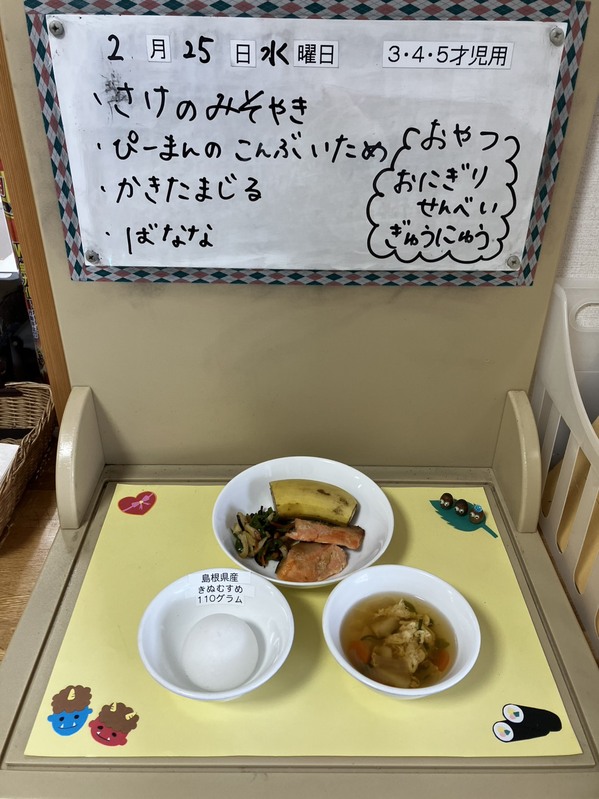 2月25日水曜日 3・4・5才児用
・さけのみそやき
・ぴーまんのこんぶいため
・かきたまじる
・ばなな
おやつ
おにぎり
せんべい
ぎゅうにゅう
島根県産
きぬむすめ
110グラム